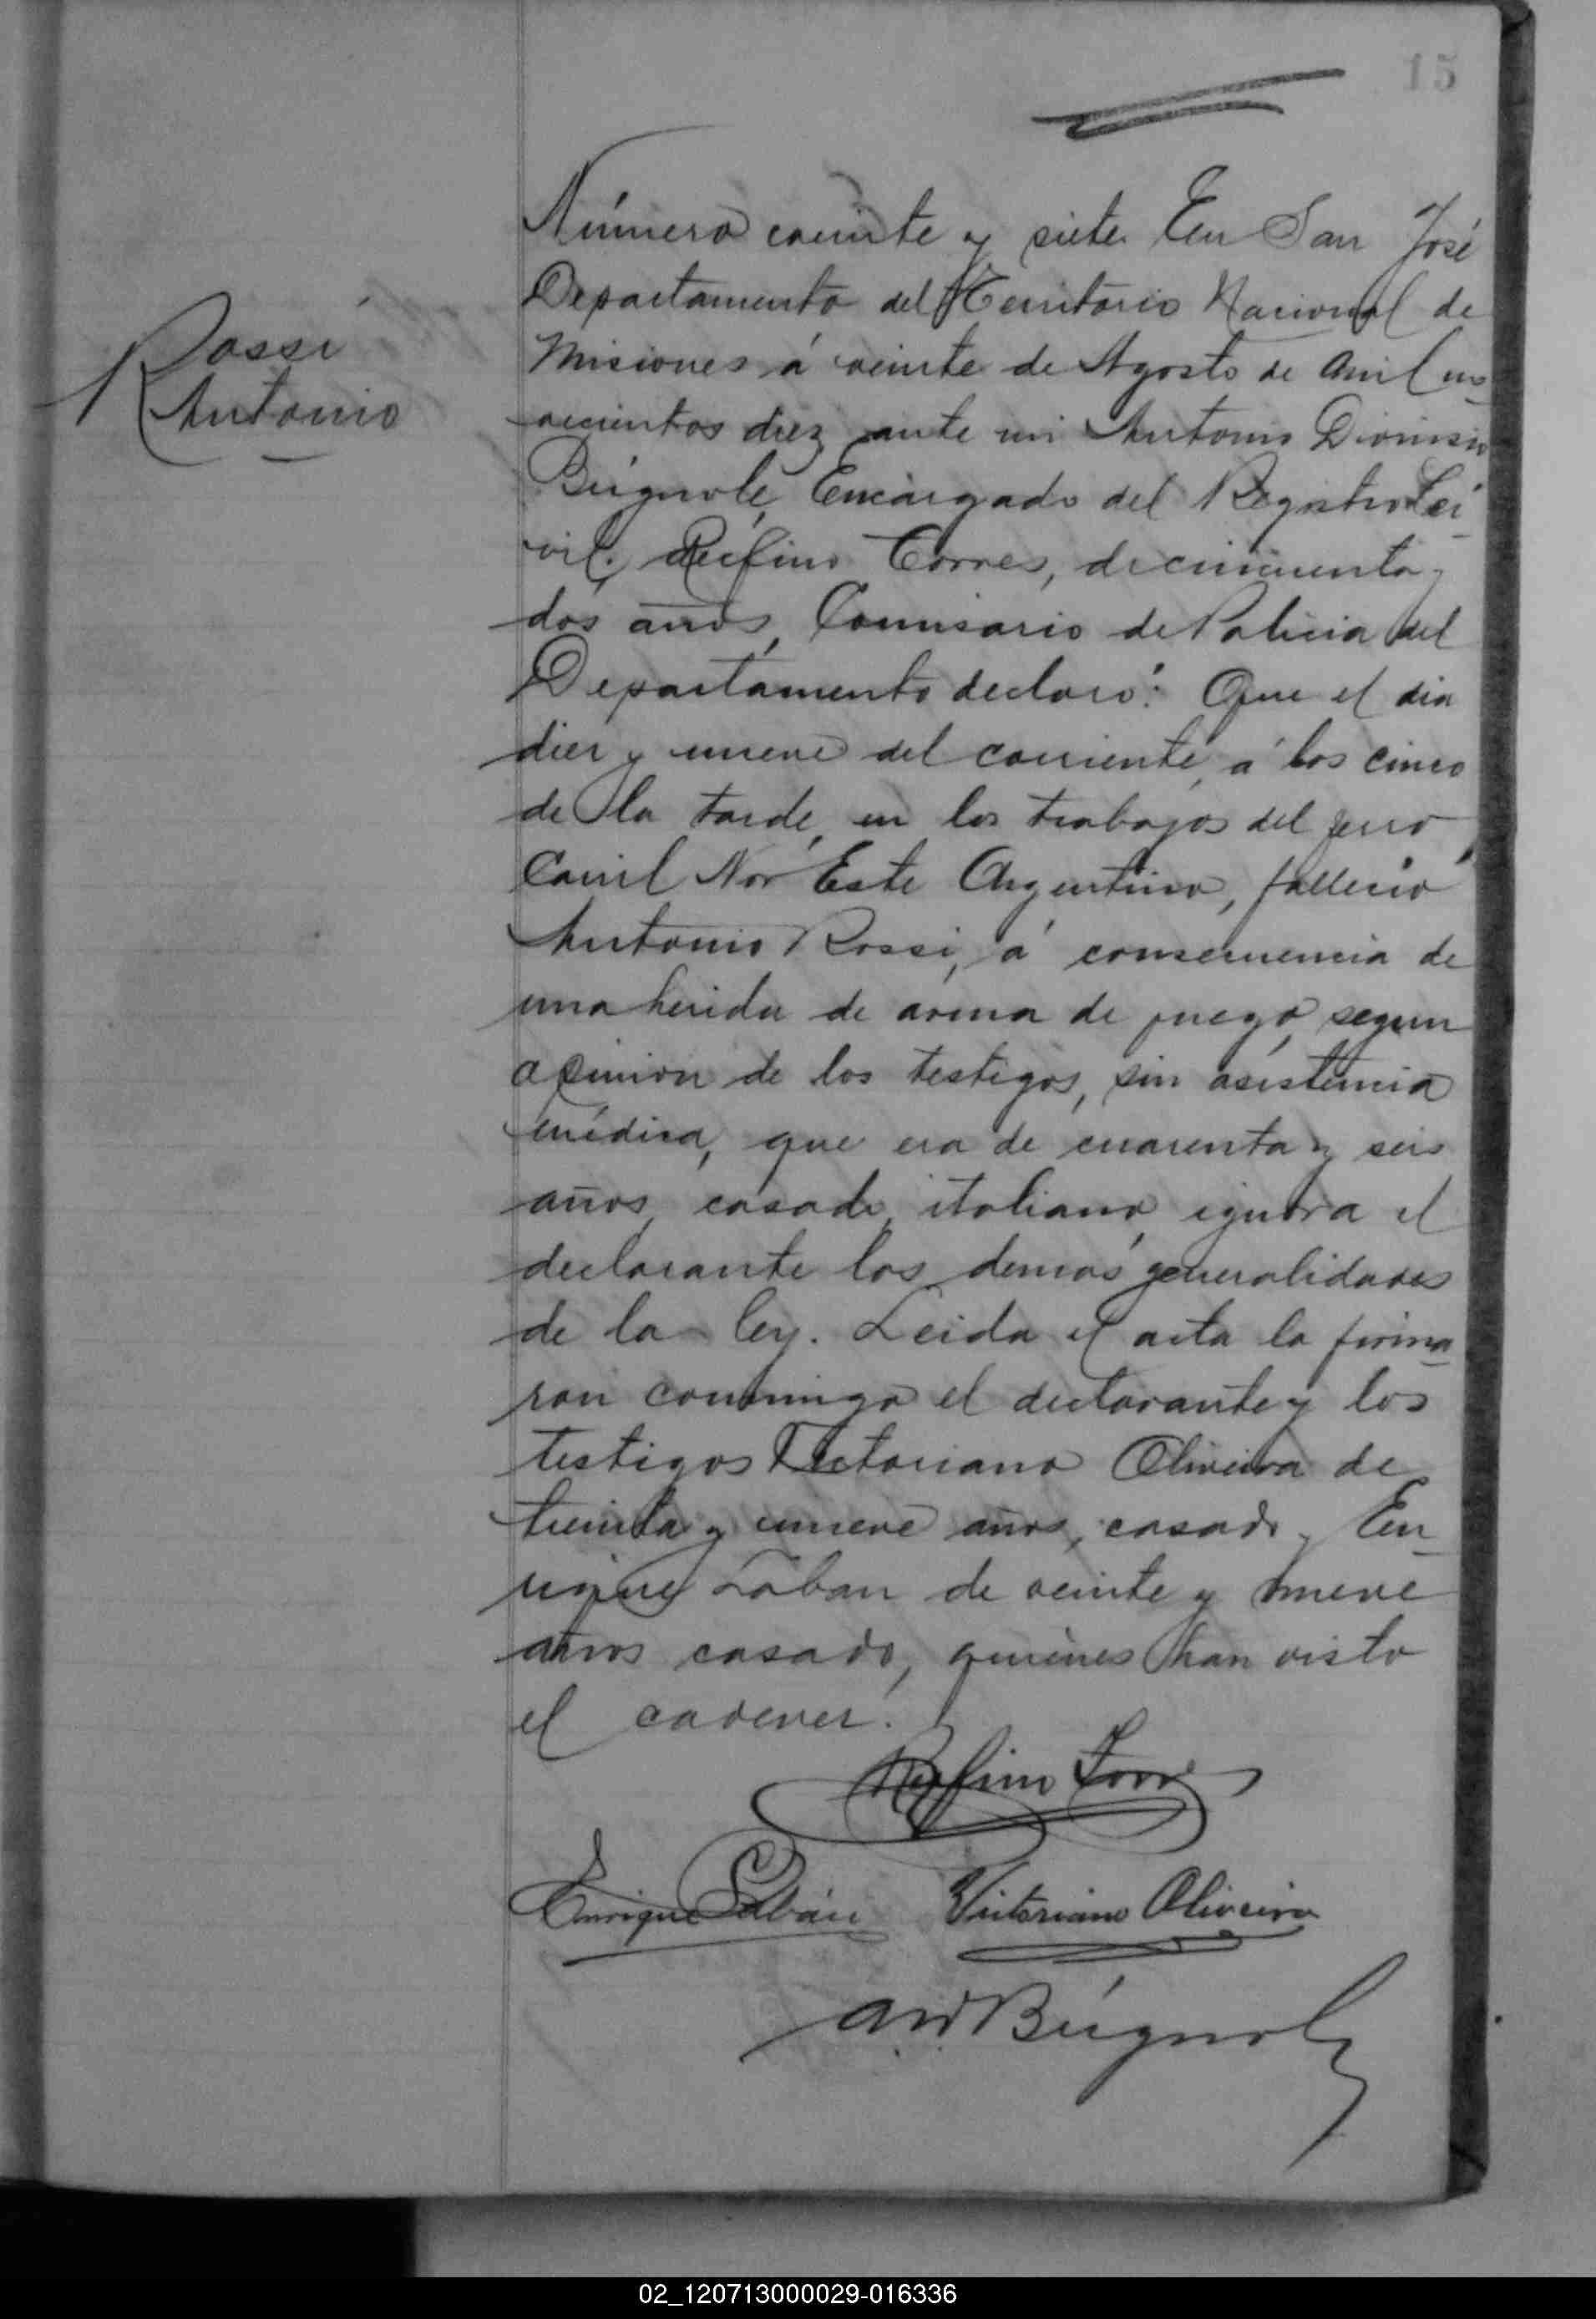 15
Número veinte y siete En San José
Departamento del Territorio Nacional de
Misiones á veinte de Agosto de mil no
vecientos diez ante mi Antonio Dionisio
Búgnole, Encargado del Registro Ci
vil, Rufino Torres, de cincuenta y
dos años, Comisario de Policia del
Departamento declaró: Que el dia
diez y nueve del corriente, á las cinco
de la tarde, en los trabajos del ferro
Carril Nor Este Argentino, falleció
Rossi
Antonio
Antonio Rossi, á consecuencia de
una herida de arma de fuego, segun
opinion de los testigos, sin asistencia
médica, que era de cuarenta y seis
años, casado, italiano, ignora el
declarante las demas generalidades
de la ley. Leida el acta la firma
ron conmigo el declarante y los
testigos Victoriano Oliveira de
treinta y nueve años, casado y En
rique Laban de veinte y nueve
años casado, quiénes han visto
el cadever.
Rufino Torres
Enrique Labán Victoriano Oliveira
A D Búgnole
02_120713000029-016336